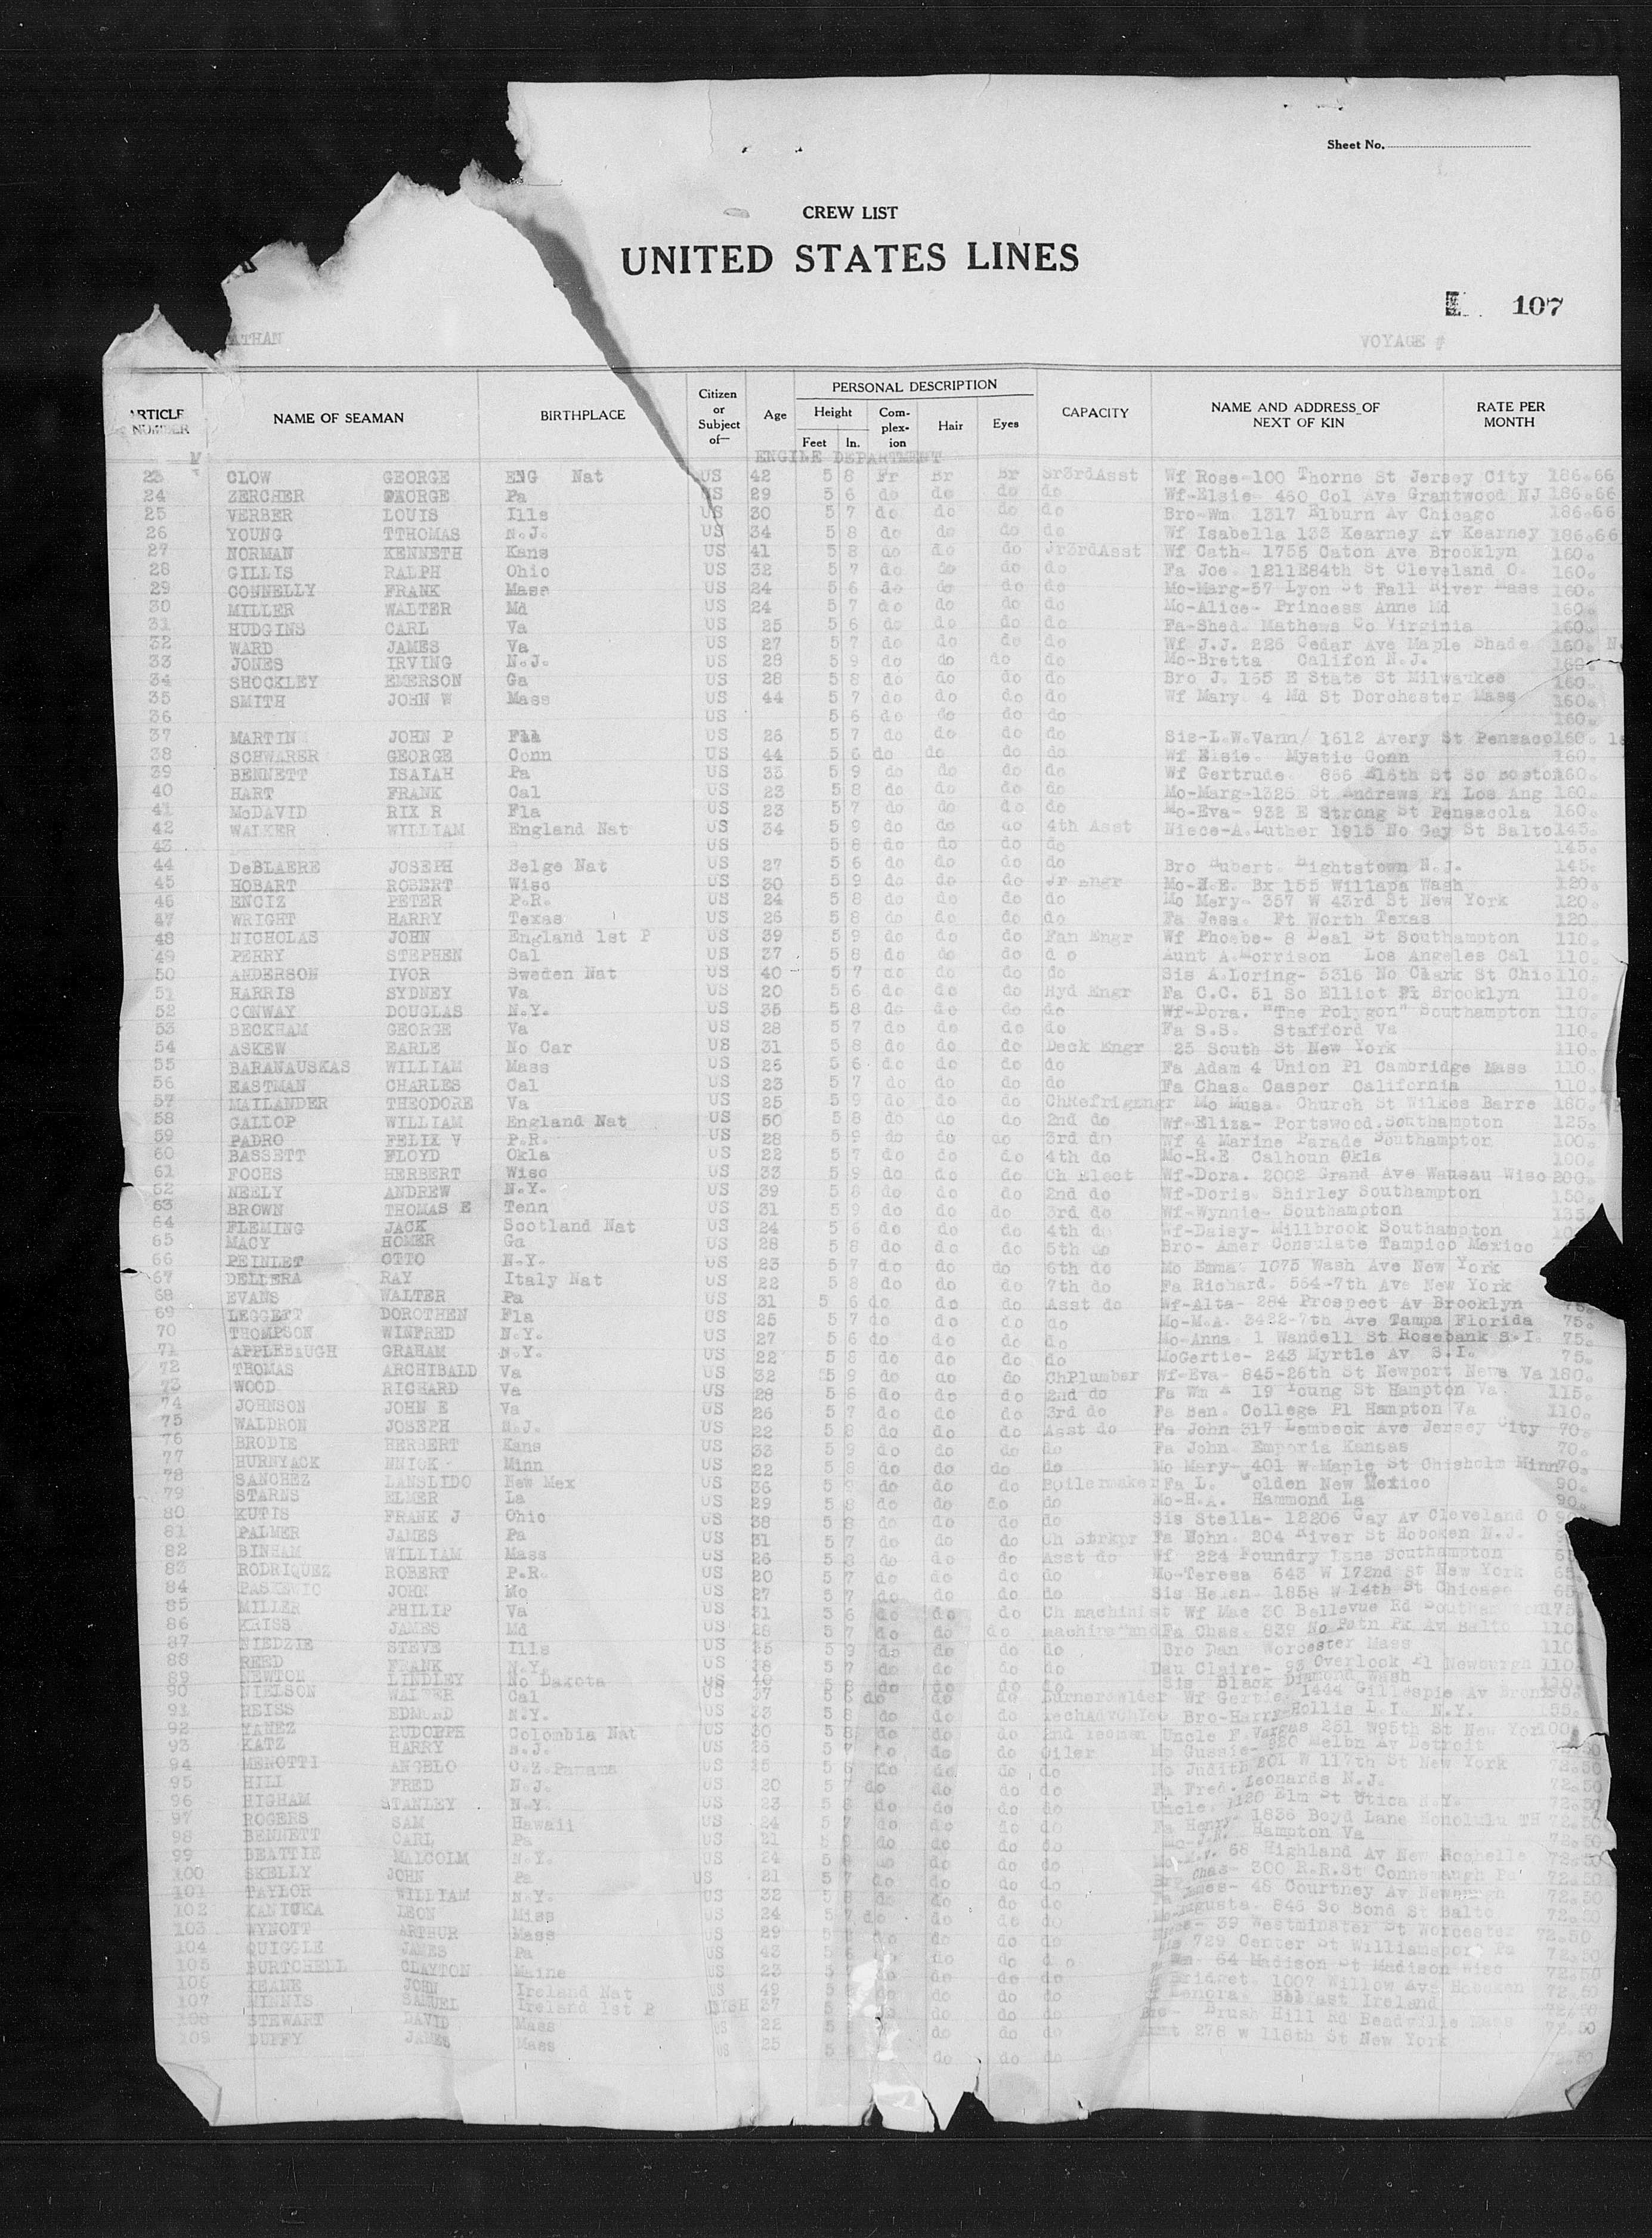 Sheet No.
CREW LIST
UNITED STATES LINES
107
ATHAN VOYAGE #
ARTICLE NUMBER NAME OF SEAMAN BIRTHPLACE Citizen or Subject of— Age PERSONAL DESCRIPTION Height Feet In. Com-plex-ion Hair Eyes CAPACITY NAME AND ADDRESS OF NEXT OF KIN RATE PER MONTH
ENGINE DEPARTMENT
23 CLOW GEORGE ENG Nat US 42 5 8 Fr Br Br Sr3rdAsst Wf Rose-100 Thorne St Jersey City 186.66
24 ZERCHER GEORGE Pa US 29 5 6 do do do do Wf-Elsie- 450 Col Ave Grantwood NJ 186.66
25 VERBER LOUIS Ills US 30 5 7 do do do do Bro-Wm. 1317 Elburn Av Chicago 186.66
26 YOUNG TTHOMAS N.J. US 34 5 8 do do do do Wf Isabella 133 Kearney Av Kearney 186.66
27 NORMAN KENNETH Kans US 41 5 8 do do do Jr3rdAsst Wf Cath- 1755 Caton Ave Brooklyn 160.
28 GILLIS RALPH Ohio US 32 5 7 do do do do Fa Joe. 1211E84th St Cleveland O. 160.
29 CONNELLY FRANK Mass US 24 5 6 do do do do Mo-Marg-57 Lyon St Fall River Mass 160.
30 MILLER WALTER Md US 24 5 7 do do do do Mo-Alice- Princess Anne Md 160.
31 HUDGINS CARL Va US 25 5 6 do do do do Fa-Shed. Mathews Co Virginia 160.
32 WARD JAMES Va US 27 5 7 do do do do Wf J.J. 226 Cedar Ave Maple Shade 160. N.
33 JONES IRVING N.J. US 28 5 9 do do do do Mo-Bretta Califon N.J. 160.
34 SHOCKLEY EMERSON Ga US 28 5 8 do do do do Bro J. 165 E State St Milwaukee 160.
35 SMITH JOHN W Mass US 44 5 7 do do do do Wf Mary. 4 Md St Dorchester Mass 160.
36 US 5 6 do do do do 160.
37 MARTIN JOHN P Fla US 26 5 7 do do do do Sis-L.W.Vann/ 1612 Avery St Pensaco 160. la
38 SCHWARER GEORGE Conn US 44 5 6 do do do do Wf Elsie. Mystic Conn 160.
39 BENNETT ISAIAH Pa US 33 5 9 do do do do Wf Gertrude. 866 E16th St So Boston 160.
40 HART FRANK Cal US 23 5 8 do do do do Mo-Marg-1326 St Andrews Pl Los Ang 160.
41 McDAVID RIX R Fla US 23 5 7 do do do do Mo-Eva- 932 E Strong St Pensacola 160.
42 WALKER WILLIAM England Nat US 34 5 9 do do do 4th Asst Niece-A.Luther 1915 No Gay St Balto 145.
43 US 5 8 do do do do 145.
44 DeBLAERE JOSEPH Belge Nat US 27 5 6 do do do do Bro Hubert. Hightstown N.J. 145.
45 HOBART ROBERT Wisc US 30 5 9 do do do Jr Engr Mo-N.E. Bx 155 Willapa Wash 120.
46 ENCIZ PETER P.R. US 24 5 8 do do do do Mo Mary- 357 W 43rd St New York 120.
47 WRIGHT HARRY Texas US 26 5 8 do do do do Fa Jess. Ft Worth Texas 120
48 NICHOLAS JOHN England 1st P US 39 5 9 do do do Fan Engr Wf Phoebe- 8 Deal St Southampton 110.
49 PERRY STEPHEN Cal US 37 5 8 do do do do Aunt A.Morrison Los Angeles Cal 110.
50 ANDERSON IVOR Sweden Nat US 40 5 7 do do do do Sis A.Loring- 5316 No Clark St Chic 110.
51 HARRIS SYDNEY Va US 20 5 6 do do do Hyd Engr Fa C.C. 51 So Elliot Pl Brooklyn 110.
52 CONWAY DOUGLAS N.Y. US 35 5 8 do do do do Wf-Dora. "The Polygon" Southampton 110.
53 BECKHAM GEORGE Va US 28 5 7 do do do do Fa S.S. Stafford Va 110.
54 ASKEW EARLE No Car US 31 5 8 do do do Deck Engr 25 South St New York 110.
55 BARANAUSKAS WILLIAM Mass US 25 5 6 do do do do Fa Adam 4 Union Pl Cambridge Mass 110.
56 EASTMAN CHARLES Cal US 23 5 7 do do do do Fa Chas. Casper California 110.
57 MAILANDER THEODORE Va US 25 5 9 do do do ChRefrigEngr Mo Musa. Church St Wilkes Barre 160.
58 GALLOP WILLIAM England Nat US 50 5 8 do do do 2nd do Wf-Eliza- Portswood.Southampton 125.
59 PADRO FELIX V P.R. US 28 5 9 do do do 3rd do Wf 4 Marine Parade Southampton 100.
60 BASSETT FLOYD Okla US 22 5 7 do do do 4th do Mo-R.E Calhoun Okla 100.
61 FOCHS HERBERT Wisc US 33 5 9 do do do Ch Elect Wf-Dora. 2002 Grand Ave Wausau Wisc 200.
62 NEELY ANDREW N.Y. US 39 5 8 do do do 2nd do Wf-Doris. Shirley Southampton 150.
63 BROWN THOMAS E Tenn US 31 5 9 do do do 3rd do Wf-Wynnie- Southampton 135.
64 FLEMING JACK Scotland Nat US 24 5 6 do do do 4th do Wf-Daisy- Millbrook Southampton
65 MACY HOMER Ga US 28 5 8 do do do 5th do Bro- Amer Consulate Tampico Mexico
66 PEINLET OTTO N.Y. US 23 5 7 do do do 6th do Mo Emma. 1075 Wash Ave New York
67 DELLERA RAY Italy Nat US 22 5 8 do do do 7th do Fa Richard. 564-7th Ave New York
68 EVANS WALTER Pa US 31 5 6 do do do Asst do Wf-Alta- 284 Prospect Av Brooklyn 75.
69 LEGGETT DOROTHEN Fla US 25 5 7 do do do do Mo-M.A. 3422-7th Ave Tampa Florida 75.
70 THOMPSON WINFRED N.Y. US 27 5 6 do do do do Mo-Anna 1 Wandell St Rosebank S.I. 75.
71 APPLEBAUGH GRAHAM N.Y. US 22 5 8 do do do do MoGertie- 243 Myrtle Av S.I. 75.
72 THOMAS ARCHIBALD Va US 32 5 9 do do do ChPlumber Wf-Eva- 845-26th St Newport News Va 180.
73 WOOD RICHARD Va US 28 5 6 do do do 2nd do Fa Wm A 19 Young St Hampton Va. 115.
74 JOHNSON JOHN E Va US 26 5 7 do do do 3rd do Fa Ben. College Pl Hampton Va 110.
75 WALDRON JOSEPH N.J. US 22 5 8 do do do Asst do Fa John 317 Lembeck Ave Jersey City 70.
76 BRODIE HERBERT Kans US 33 5 9 do do do do Fa John Emporia Kansas 70.
77 HURNYACK NNICK Minn US 22 5 8 do do do do Mo Mary- 401 W Maple St Chisholm Minn 70.
78 SANCHEZ LANSLIDO New Mex US 36 5 9 do do do Boilermaker Fa L. Golden New Mexico 90.
79 STARNS ELMER La US 29 5 8 do do do do Mo-H.A. Hammond La 90.
80 KUTIS FRANK J Ohio US 38 5 8 do do do do Sis Stella- 12206 Gay Av Cleveland O
81 PALMER JAMES Pa US 31 5 7 do do do Ch Strkpr Fa John. 204 River St Hoboken N.J.
82 BINHAM WILLIAM Mass US 26 5 8 do do do Asst do Wf 224 Foundry Lane Southampton
83 RODRIQUEZ ROBERT P.R. US 20 5 7 do do do do Mo-Teresa 643 W 172nd St New York 65.
84 PASKEWIC JOHN Mo US 27 5 7 do do do do Sis Helen- 1858 W 14th St Chicago 65
85 MILLER PHILIP Va US 31 5 6 do do do Ch machinist Wf Mae 30 Bellevue Rd Southampton 175
86 KRISS JAMES Md US 28 5 7 do do do Fa Chas. 839 No Patn Pk Av Balto 110
87 NIEDZIE STEVE Ills US 35 5 9 do do do do Bro Dan Worcester Mass 110
88 REED FRANK N.Y. US 38 5 7 do do do do Dau Claire- Overlook Pl Newburgh 110
89 NEWTON LINDLEY No Dakota US 40 5 8 do do do do Sis Black Diamond Wash
90 NIELSON WALTER Cal US 37 5 8 do do do Wf Gertie. 1444 Gillespie Av Bronx
91 REISS EDMUND N.Y. US 23 5 8 do do do Bro-Harry-Hollis L.I. N.Y.
92 YANEZ RUDOLPH Colombia Nat US 30 5 8 do do do 2nd Yeoman Uncle F.Vargas 251 W95th St New York 100.
93 KATZ HARRY N.J. US 26 5 7 do do do Oiler Mo Gussie- Melbn Av Detroit
94 MENOTTI ANGELO C.Z.Panama US 25 5 6 do do do do Mo Judith 201 W 117th St New York 72.50
95 HILL FRED N.J. US 20 5 7 do do do do Fa Fred. Leonards N.J. 72.50
96 HIGHAM STANLEY N.Y. US 23 5 8 do do do do Uncle. 1120 Elm St Utica N.Y. 72.50
97 ROGERS SAM Hawaii US 24 5 7 do do do do Fa Henry- 1836 Boyd Lane Honolulu TH 72.50
98 BENNETT CARL Pa US 21 5 9 do do do do Hampton Va 72.50
99 BEATTIE MALCOLM N.Y. US 24 5 8 do do do do 68 Highland Av New Rochelle 72.50
100 SKELLY JOHN Pa US 21 5 7 do do do do Chas- 300 R.R.St Connemaugh Pa 72.50
101 TAYLOR WILLIAM N.Y. US 32 5 8 do do do do James- 48 Courtney Av Newburgh 72.50
102 KANIUKA LEON Miss US 24 5 7 do do do do Augusta. 846 So Bond St Balto 72.50
103 WYNOTT ARTHUR Mass US 29 5 do do do do 39 Westminster St Worcester 72.50
104 QUIGGLE JAMES Pa US 43 5 6 do do do do 729 Center St Williamsport Pa 72.50
105 BURTCHELL CLAYTON Maine US 23 5 do do do do 64 Madison St Madison Wisc 72.50
106 KEANE JOHN Ireland Nat US 49 5 do do do Bridget. 1007 Willow Ave Hoboken 72.50
107 MINNIS SAMUEL Ireland 1st P 37 5 do do do Lenora. Belfast Ireland 72.50
108 STEWART DAVID Mass US 22 5 do do do Bro- Brush Hill Rd Readville Mass 72.50
109 DUFFY JAMES Mass US 25 5 8 do do do Aunt 278 W 118th St New York 72.50